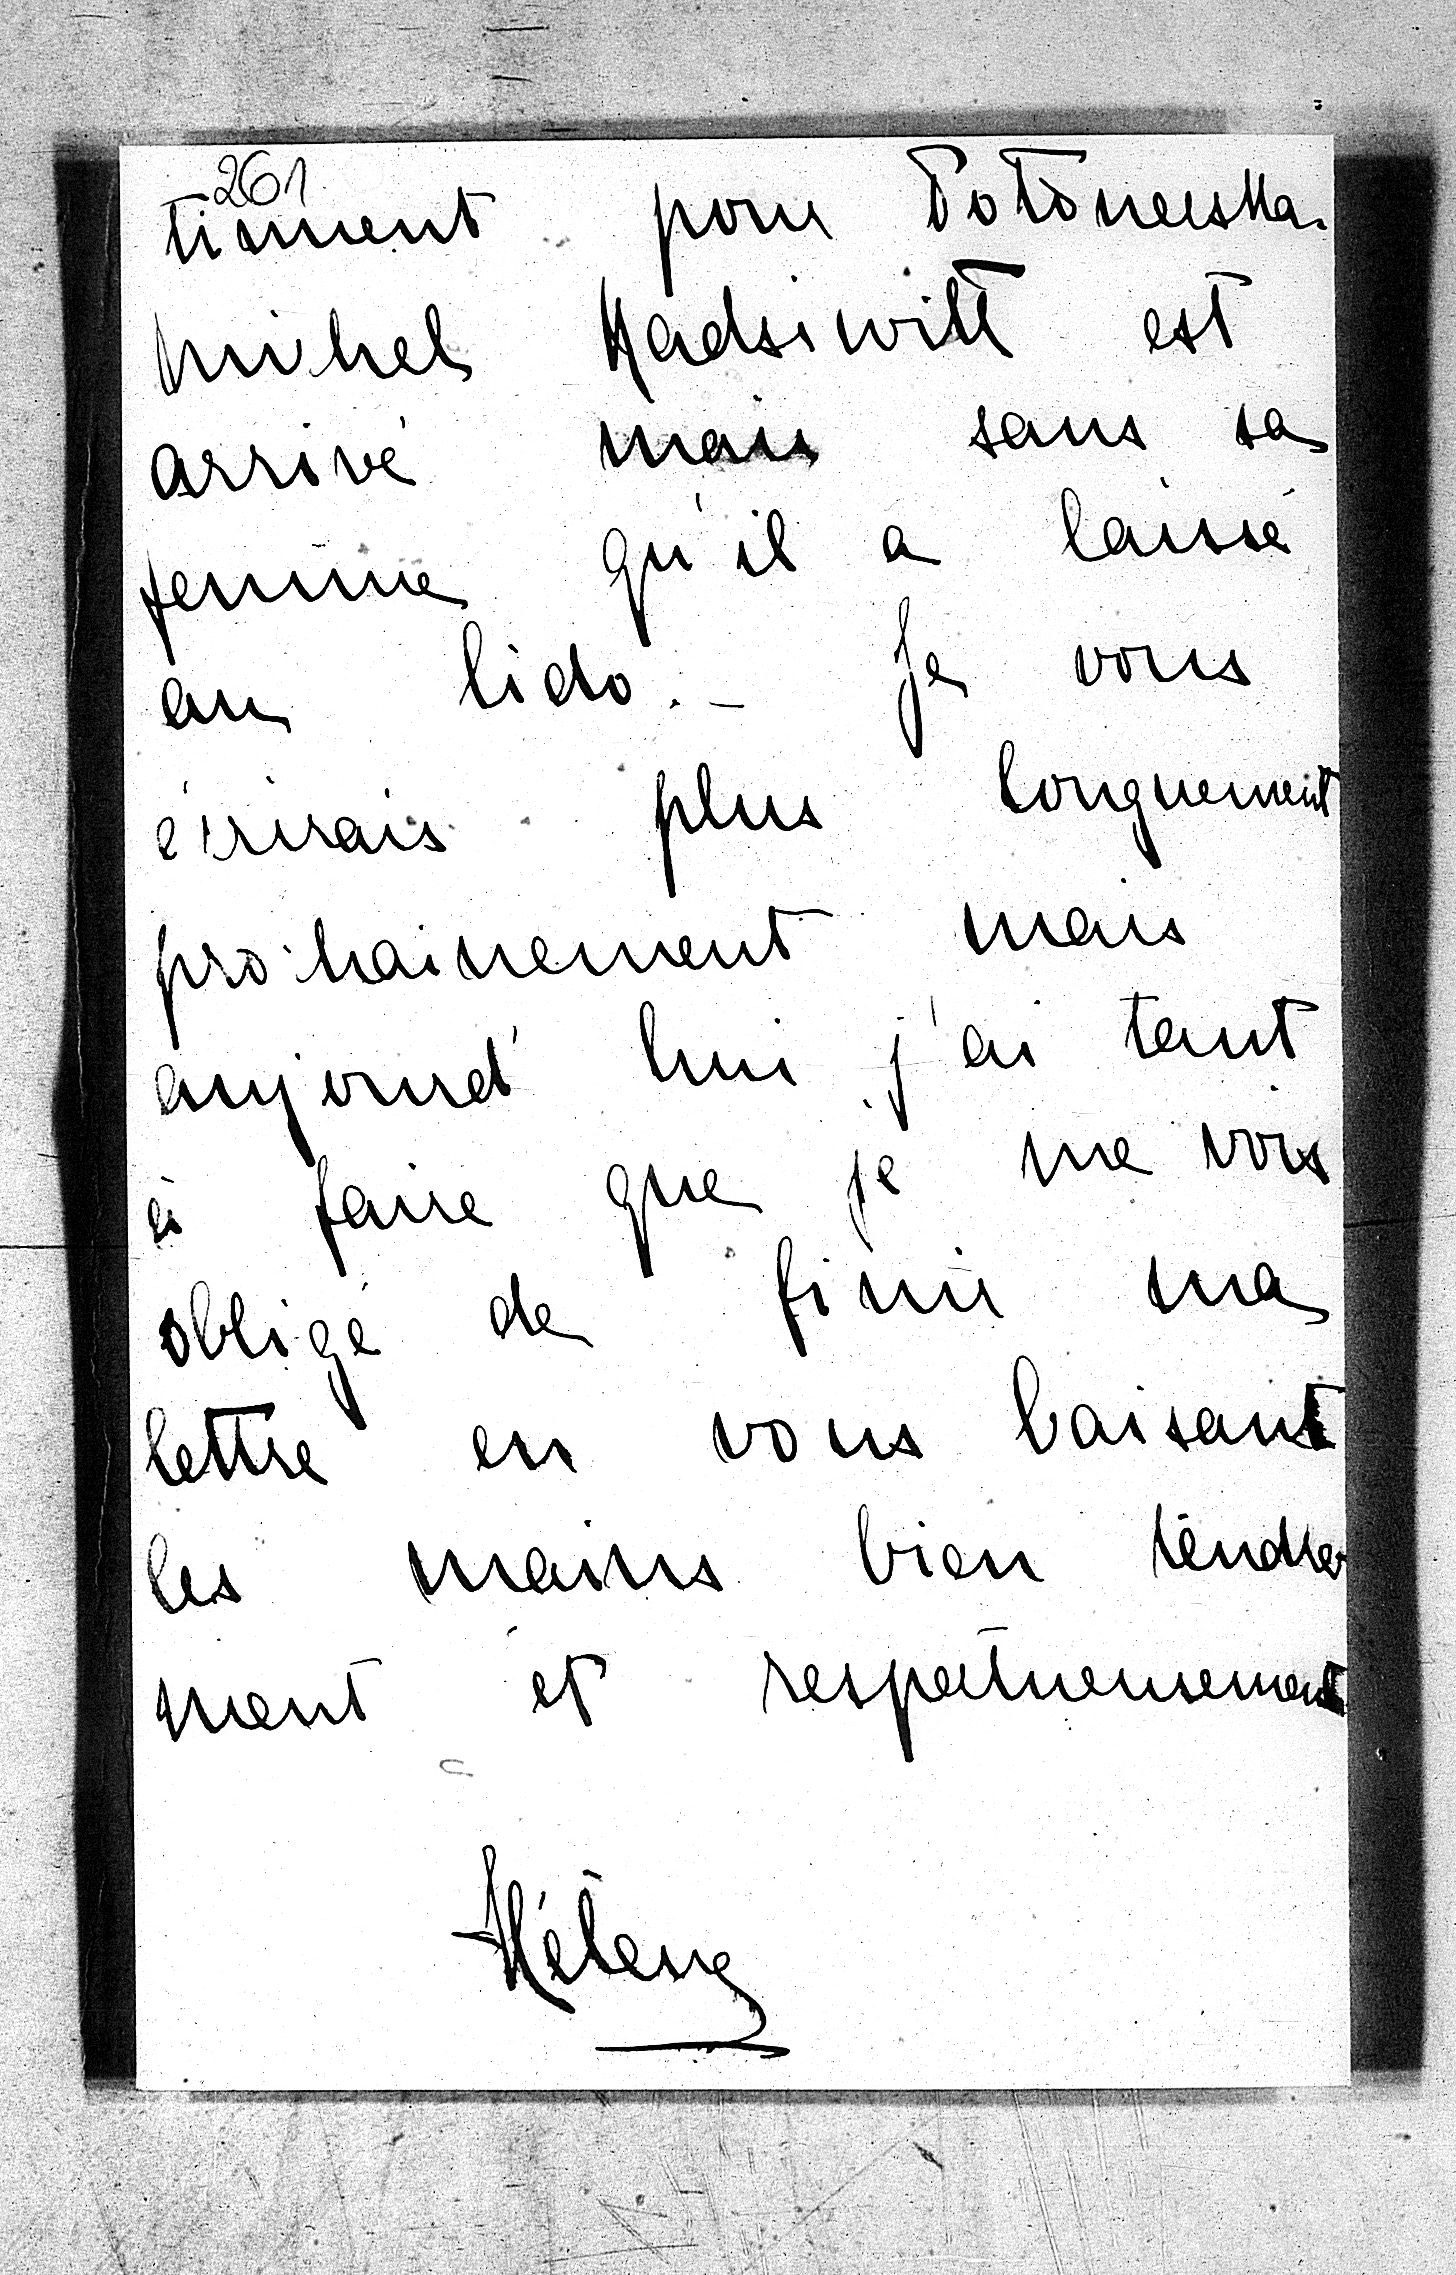 261
timent pour Potoneeska.
Michel Radsiwill est
arrivé mais sans sa
femme qu'il a laissé
au lido. – Je vous
écrirais plus longuement
prochainement mais
aujourd'hui j'ai tant
à faire que je me vois
obligé de finir ma
lettre en vous baisant
les mains bien tendre
ment et respectueusement
Hélène